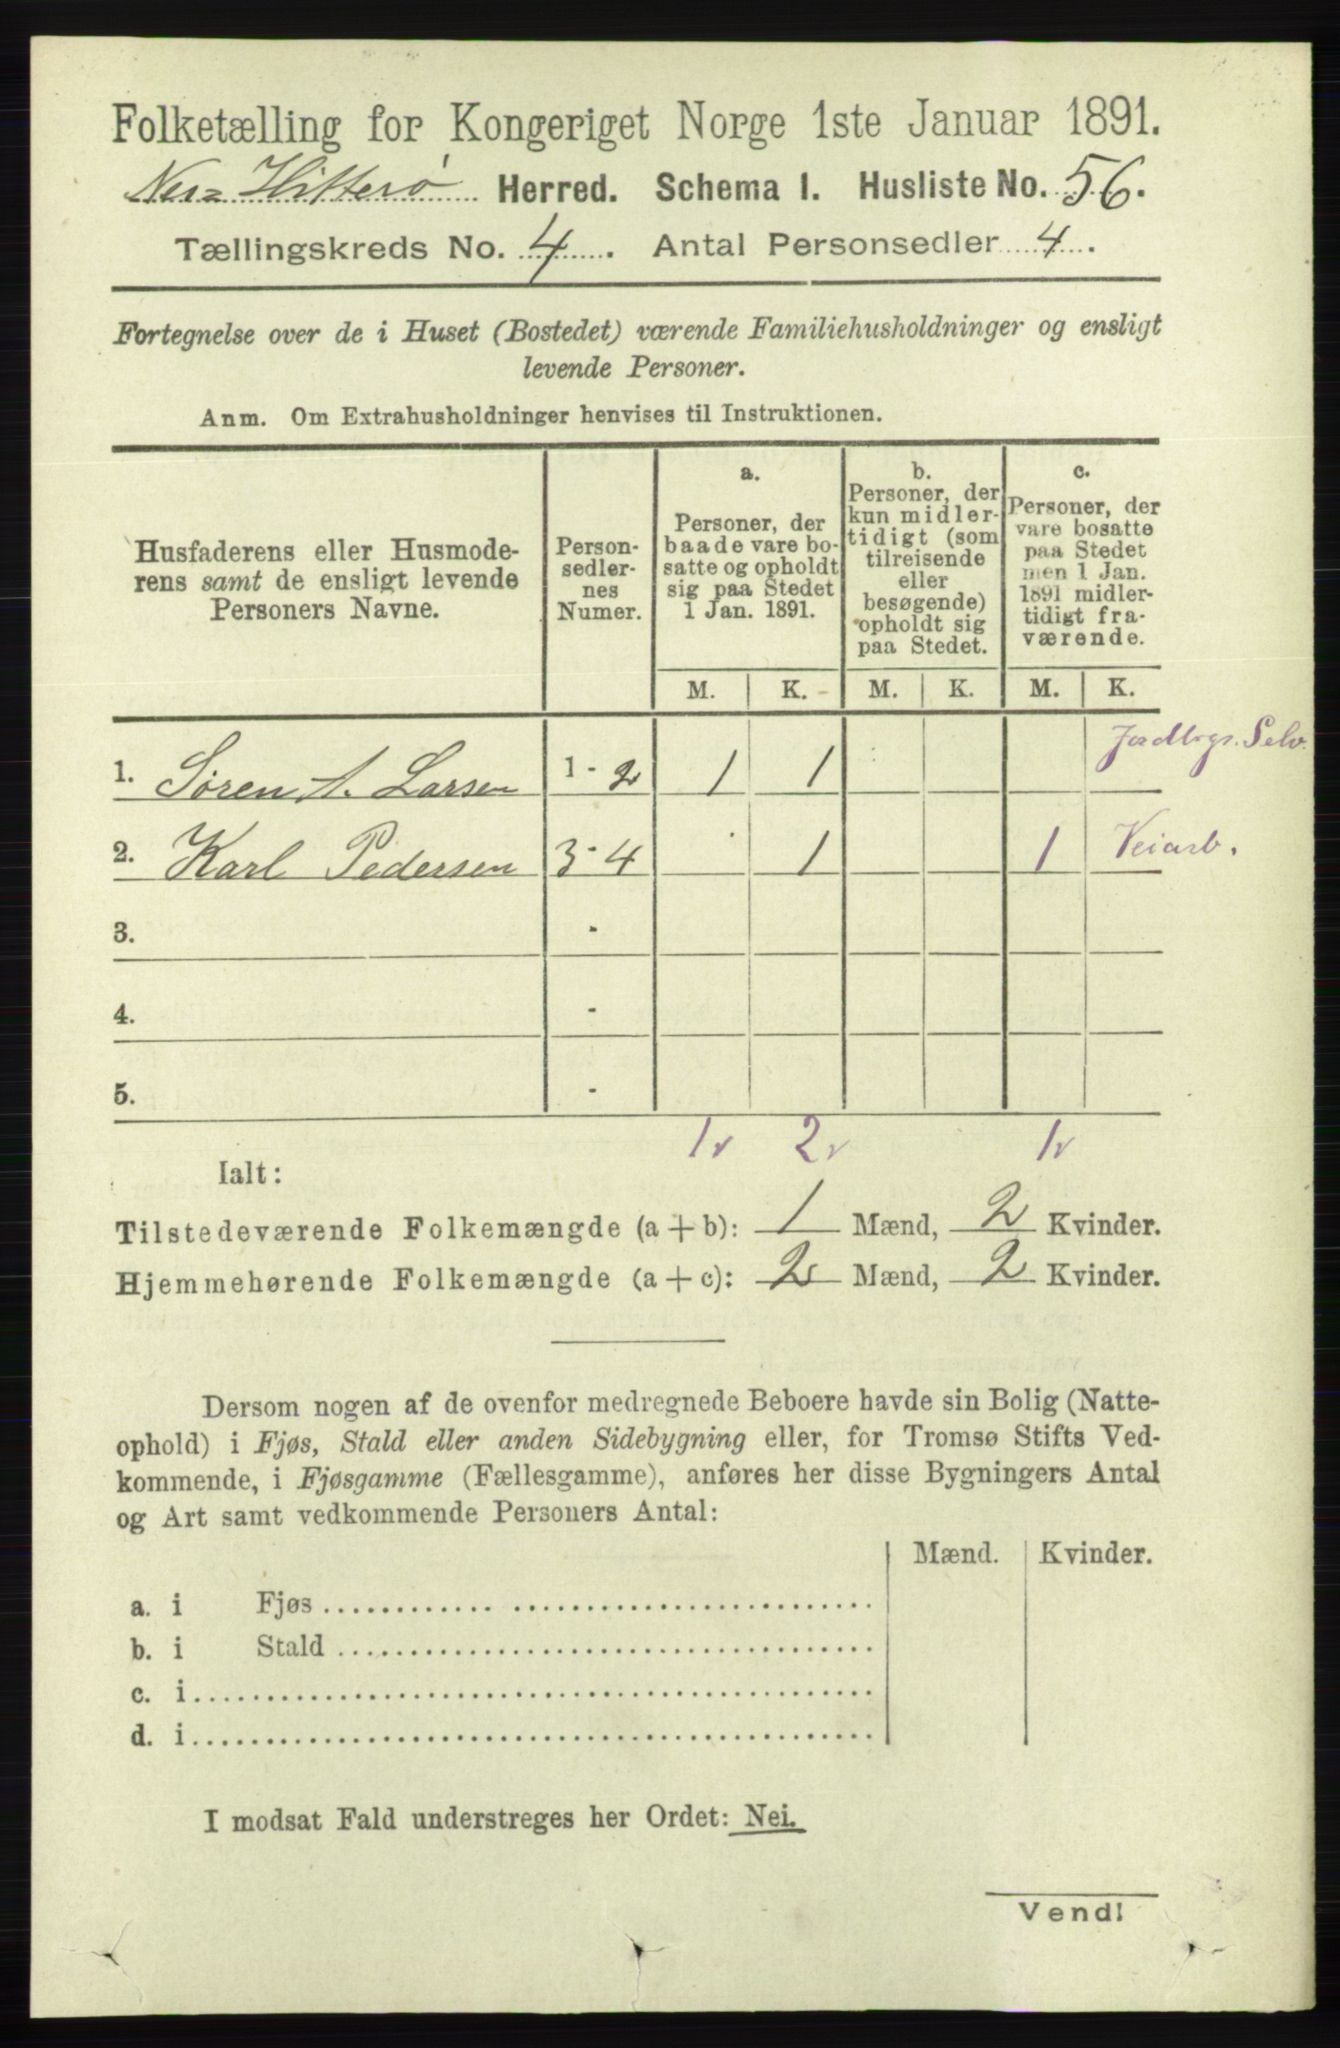 Folketælling for Kongeriget Norge 1ste Januar 1891.
Nes-Hitterø Herred. Schema 1. Husliste No. 56.
Tællingskreds No. 4. Antal Personsedler 4.
Fortegnelse over de i Huset (Bostedet) værende Familiehusholdninger og ensligt
levende Personer.
Anm. Om Extrahusholdninger henvises til Instruktionen.
Husfaderens eller Husmode-
rens samt de ensligt levende
Personers Navne.
Person-
sedler-
nes
Numer.
a.
Personer, der
baade vare bo-
satte og opholdt
sig paa Stedet
1 Jan. 1891.
b.
Personer, der
kun midler-
tidigt (som
tilreisende
eller
besøgende)
opholdt sig
paa Stedet.
c.
Personer, der
vare bosatte
paa Stedet
men 1 Jan.
1891 midler-
tidigt fra-
værende.
M. K. M. K. M. K.
1. Søren A. Larsen 1 - 2 1 1 Jordbrgs. Selv.
2. Karl Pedersen 3 - 4 1 1 Veiarb.
3. -
4. -
5. -
1 2 1
Ialt:
Tilstedeværende Folkemængde (a + b): 1 Mænd, 2 Kvinder.
Hjemmehørende Folkemængde (a + c): 2 Mænd, 2 Kvinder.
Dersom nogen af de ovenfor medregnede Beboere havde sin Bolig (Natte-
ophold) i Fjøs, Stald eller anden Sidebygning eller, for Tromsø Stifts Ved-
kommende, i Fjøsgamme (Fællesgamme), anføres her disse Bygningers Antal
og Art samt vedkommende Personers Antal:
Mænd. Kvinder.
a. i Fjøs
b. i Stald
c. i
d. i
I modsat Fald understreges her Ordet: Nei.
Vend!